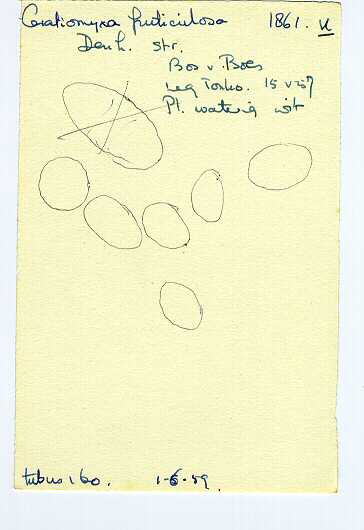 Ceratiomyxa fruticulosa 1861. U
Den h. str.
Bos v. Boes
leg Tonko. 15
Pl. waterig wit
tubus 160. 1-6-59.